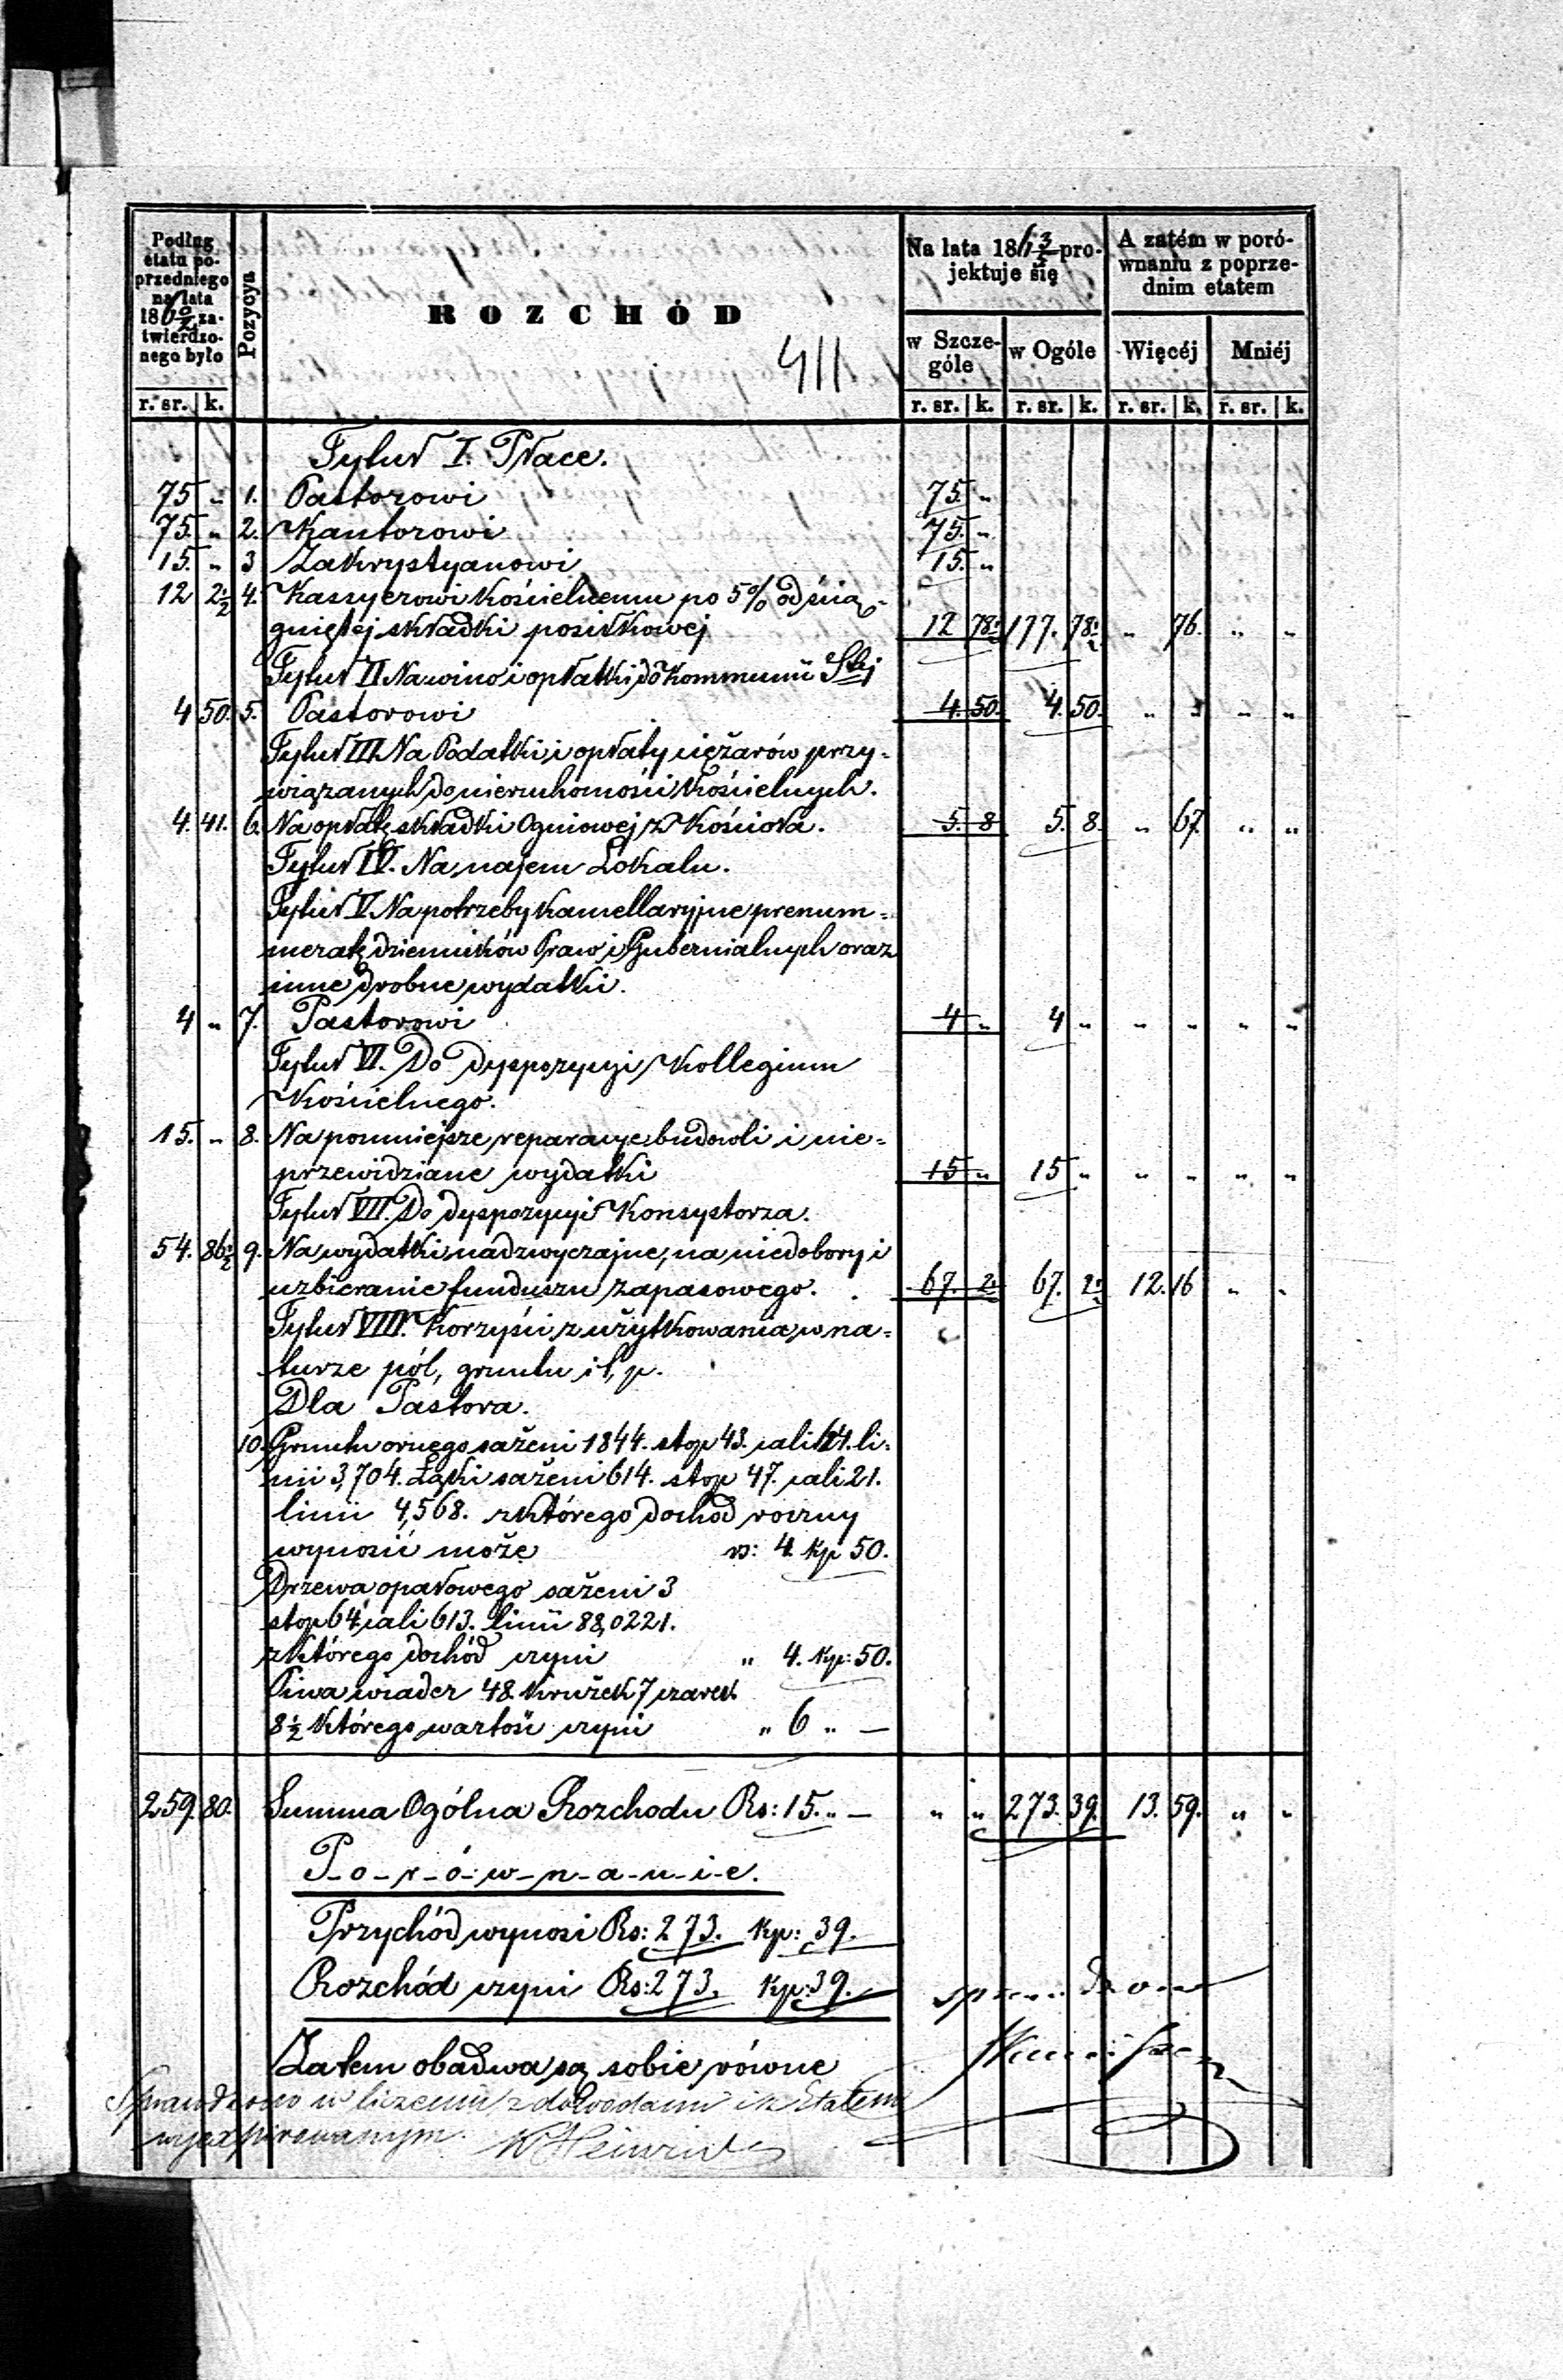 Podług etatu poprzedniego na lata 18 60/2 zatwierdzonego było
Pozycya
ROZCHÓD
411
Na lata 18 6 3/ projektuje się
w Szczególe
w Ogóle
A zatém w porównaniu z poprzednim etatem
Więcéj
Mniéj
r. sr. k. r. sr. k. r. sr. k. r. sr. k. r. sr. k.
Tytuł I. Płace.
75 " 1. Pastorowi 75. "
75. " 2. Kantorowi 75. "
15. " 3 Zakrystyanowi 15. "
12 2½ 4. Kassyerowi Kościelnemu po 5% od ścią-
gniętej składki posiłkowej 12 78½ 177. 78½ " 76. " "
Tytuł II Na wino i opłatki do Kommunii Stej
4 50. 5. Pastorowi 4. 50. 4. 50. " " " "
Tytuł III. Na Podatki i opłaty ciężarów przy-
wiązanych do nieruchomości Kościelnych.
4. 41. 6. Na opłatę składki Ogniowej z Kościoła. 5. 8 5. 8. " 67. " "
Tytuł IV. Na najem Lokalu.
Tytuł V. Na potrzeby Kancellaryjne prenum=
meratę dzienników Praw i Gubernialnych oraz
inne drobne wydatki.
4 " 7. Pastorowi 4 " 4 " " " " "
Tytuł VI. Do Dyspozycyi Kollegium
Kościelnego.
15. " 8. Na pomniejsze reparacye budowli i nie=
przewidziane wydatki 15 " 15 " " " " "
Tytuł VII. Do dyspozycyi Konsystorza.
54. 86½ 9. Na wydatki nadzwyczajne, na niedobory i
uzbieranie funduszu zapasowego. 67. 2½ 67. 2½ 12. 16 " "
Tytuł VIII. Korzyści z użytkowania w na=
turze pól, gruntu i t. p.
Dla Pastora.
10. Gruntu ornego sażeni 1844. stop 43. cali 64. li=
nii 3,704. Łąki sażeni 614. stop 47. cali 21.
linii 4,568. z którego dochód roczny
wynosić może rs: 4. kp 50.
Drzewa opałowego sażeni 3
stop 64. cali 613. linii 88,0221.
z którego dochód czyni " 4. kp: 50.
Piwa wiader 48. Krużek 7 czarek
8½ którego wartość czyni " 6 " —
259. 80. Summa Ogólna Rozchodu Rs: 15. " — " " 273. 39. 13. 59. " "
P-o-r-ó-w-n-a-n-i-e.
Przychód wynosi Rs: 273. Kp: 39.
Rozchód czyni Rs: 273. Kp: 39.
Zatem obadwa są sobie równe
Sprawdzono w liczeniu z dowodami i z Etatem
wyexpirowanym.